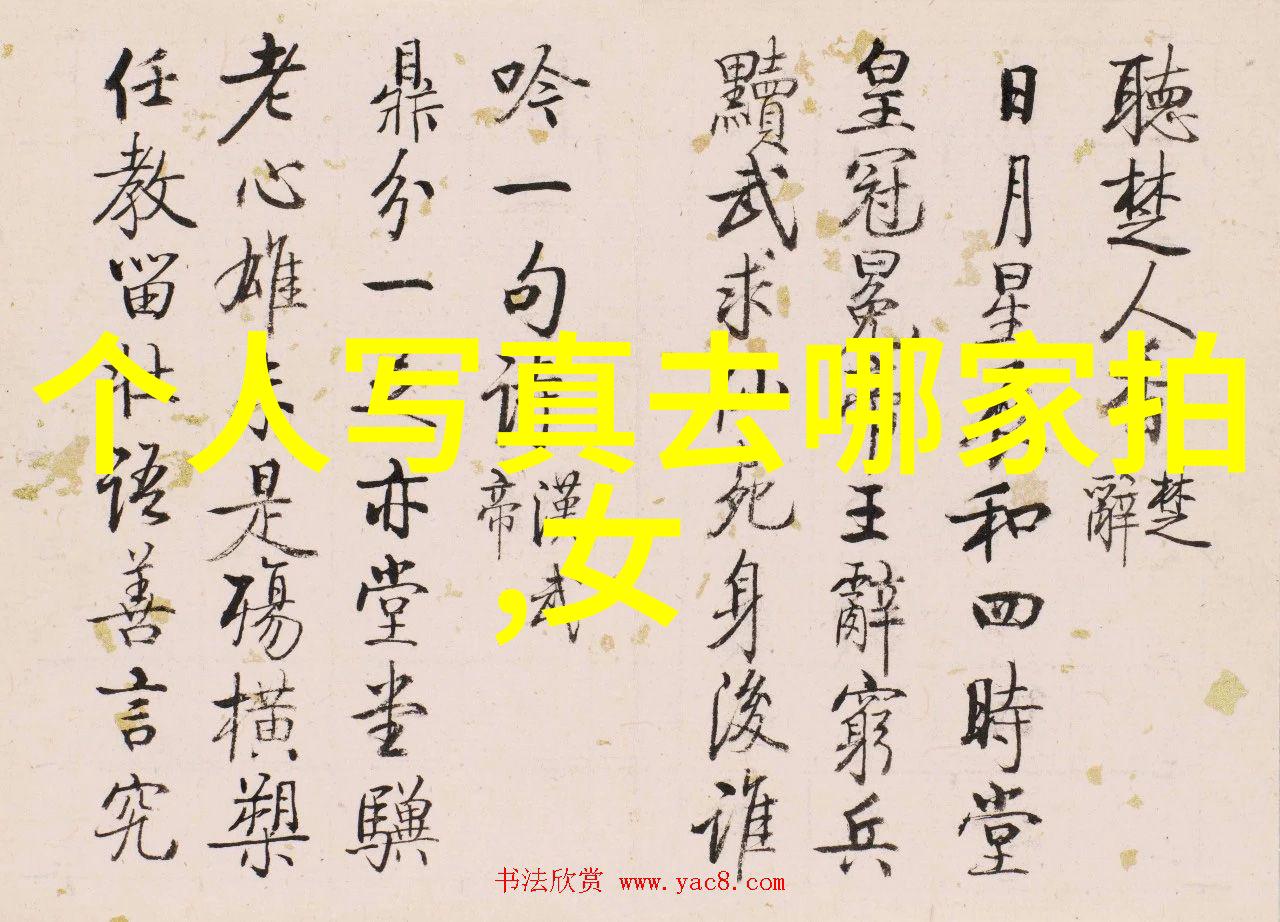 聽楚人 楚辭
日月星 和四時堂
皇冠冕 王辭窮兵
黷武求仙死身後誰
吟一句詩漢武帝
鼎分一 亦堂堂驥
老心雄未是殤橫槊
任教留壯語善言究
个人写真去哪家拍
,女
书法欣赏 www.yac8.com